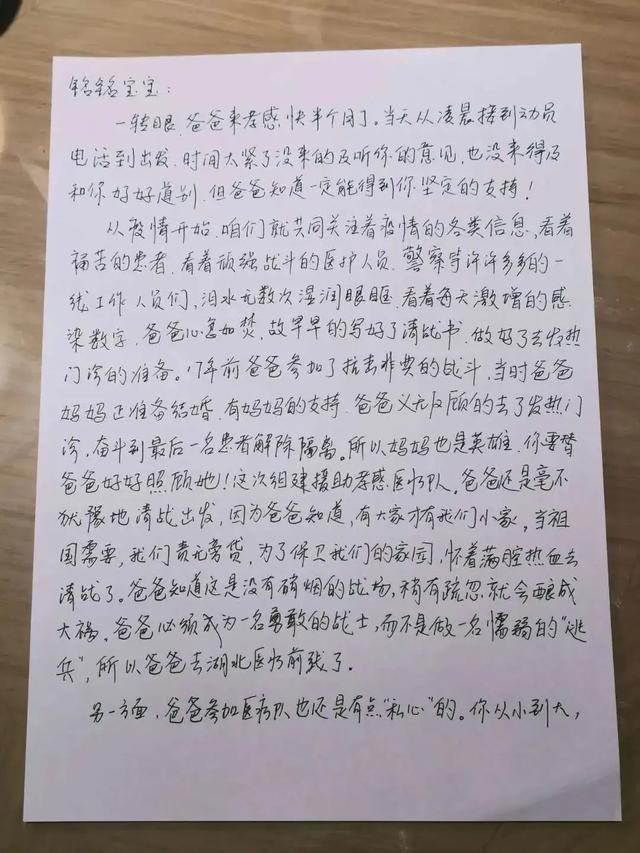 铭铭宝宝：
一转眼，爸爸来孝感快半个月了。当天从凌晨接到动员
电话到出发，时间太紧了没来的及听你的意见，也没来得及
和你好好道别，但爸爸知道一定能得到你坚定的支持！
从疫情开始，咱们就共同关注着疫情的各类信息，看着
痛苦的患者，看着顽强战斗的医护人员、警察等许许多多的一
线工作人员们，泪水无数次湿润眼眶，看着每天激增的感
染数字，爸爸心急如焚，故早早的写好了请战书，做好了去发热
门诊的准备。17年前爸爸参加了抗击非典的战斗，当时爸爸
妈妈正准备结婚，有妈妈的支持，爸爸义无反顾的去了发热门
诊，奋斗到最后一名患者解除隔离。所以妈妈也是英雄，你要替
爸爸好好照顾她！这次组建援助孝感医疗队，爸爸还是毫不
犹豫地请战出发，因为爸爸知道，有大家才有我们小家，当祖
国需要，我们责无旁贷，为了保卫我们的家园，怀着满腔热血去
请战了。爸爸知道这是没有硝烟的战场，稍有疏忽就会酿成
大祸，爸爸必须成为一名勇敢的战士，而不是做一名懦弱的“逃
兵”，所以爸爸去湖北医疗前线了。
另一方面，爸爸参加医疗队也还是有点“私心”的。你从小到大，